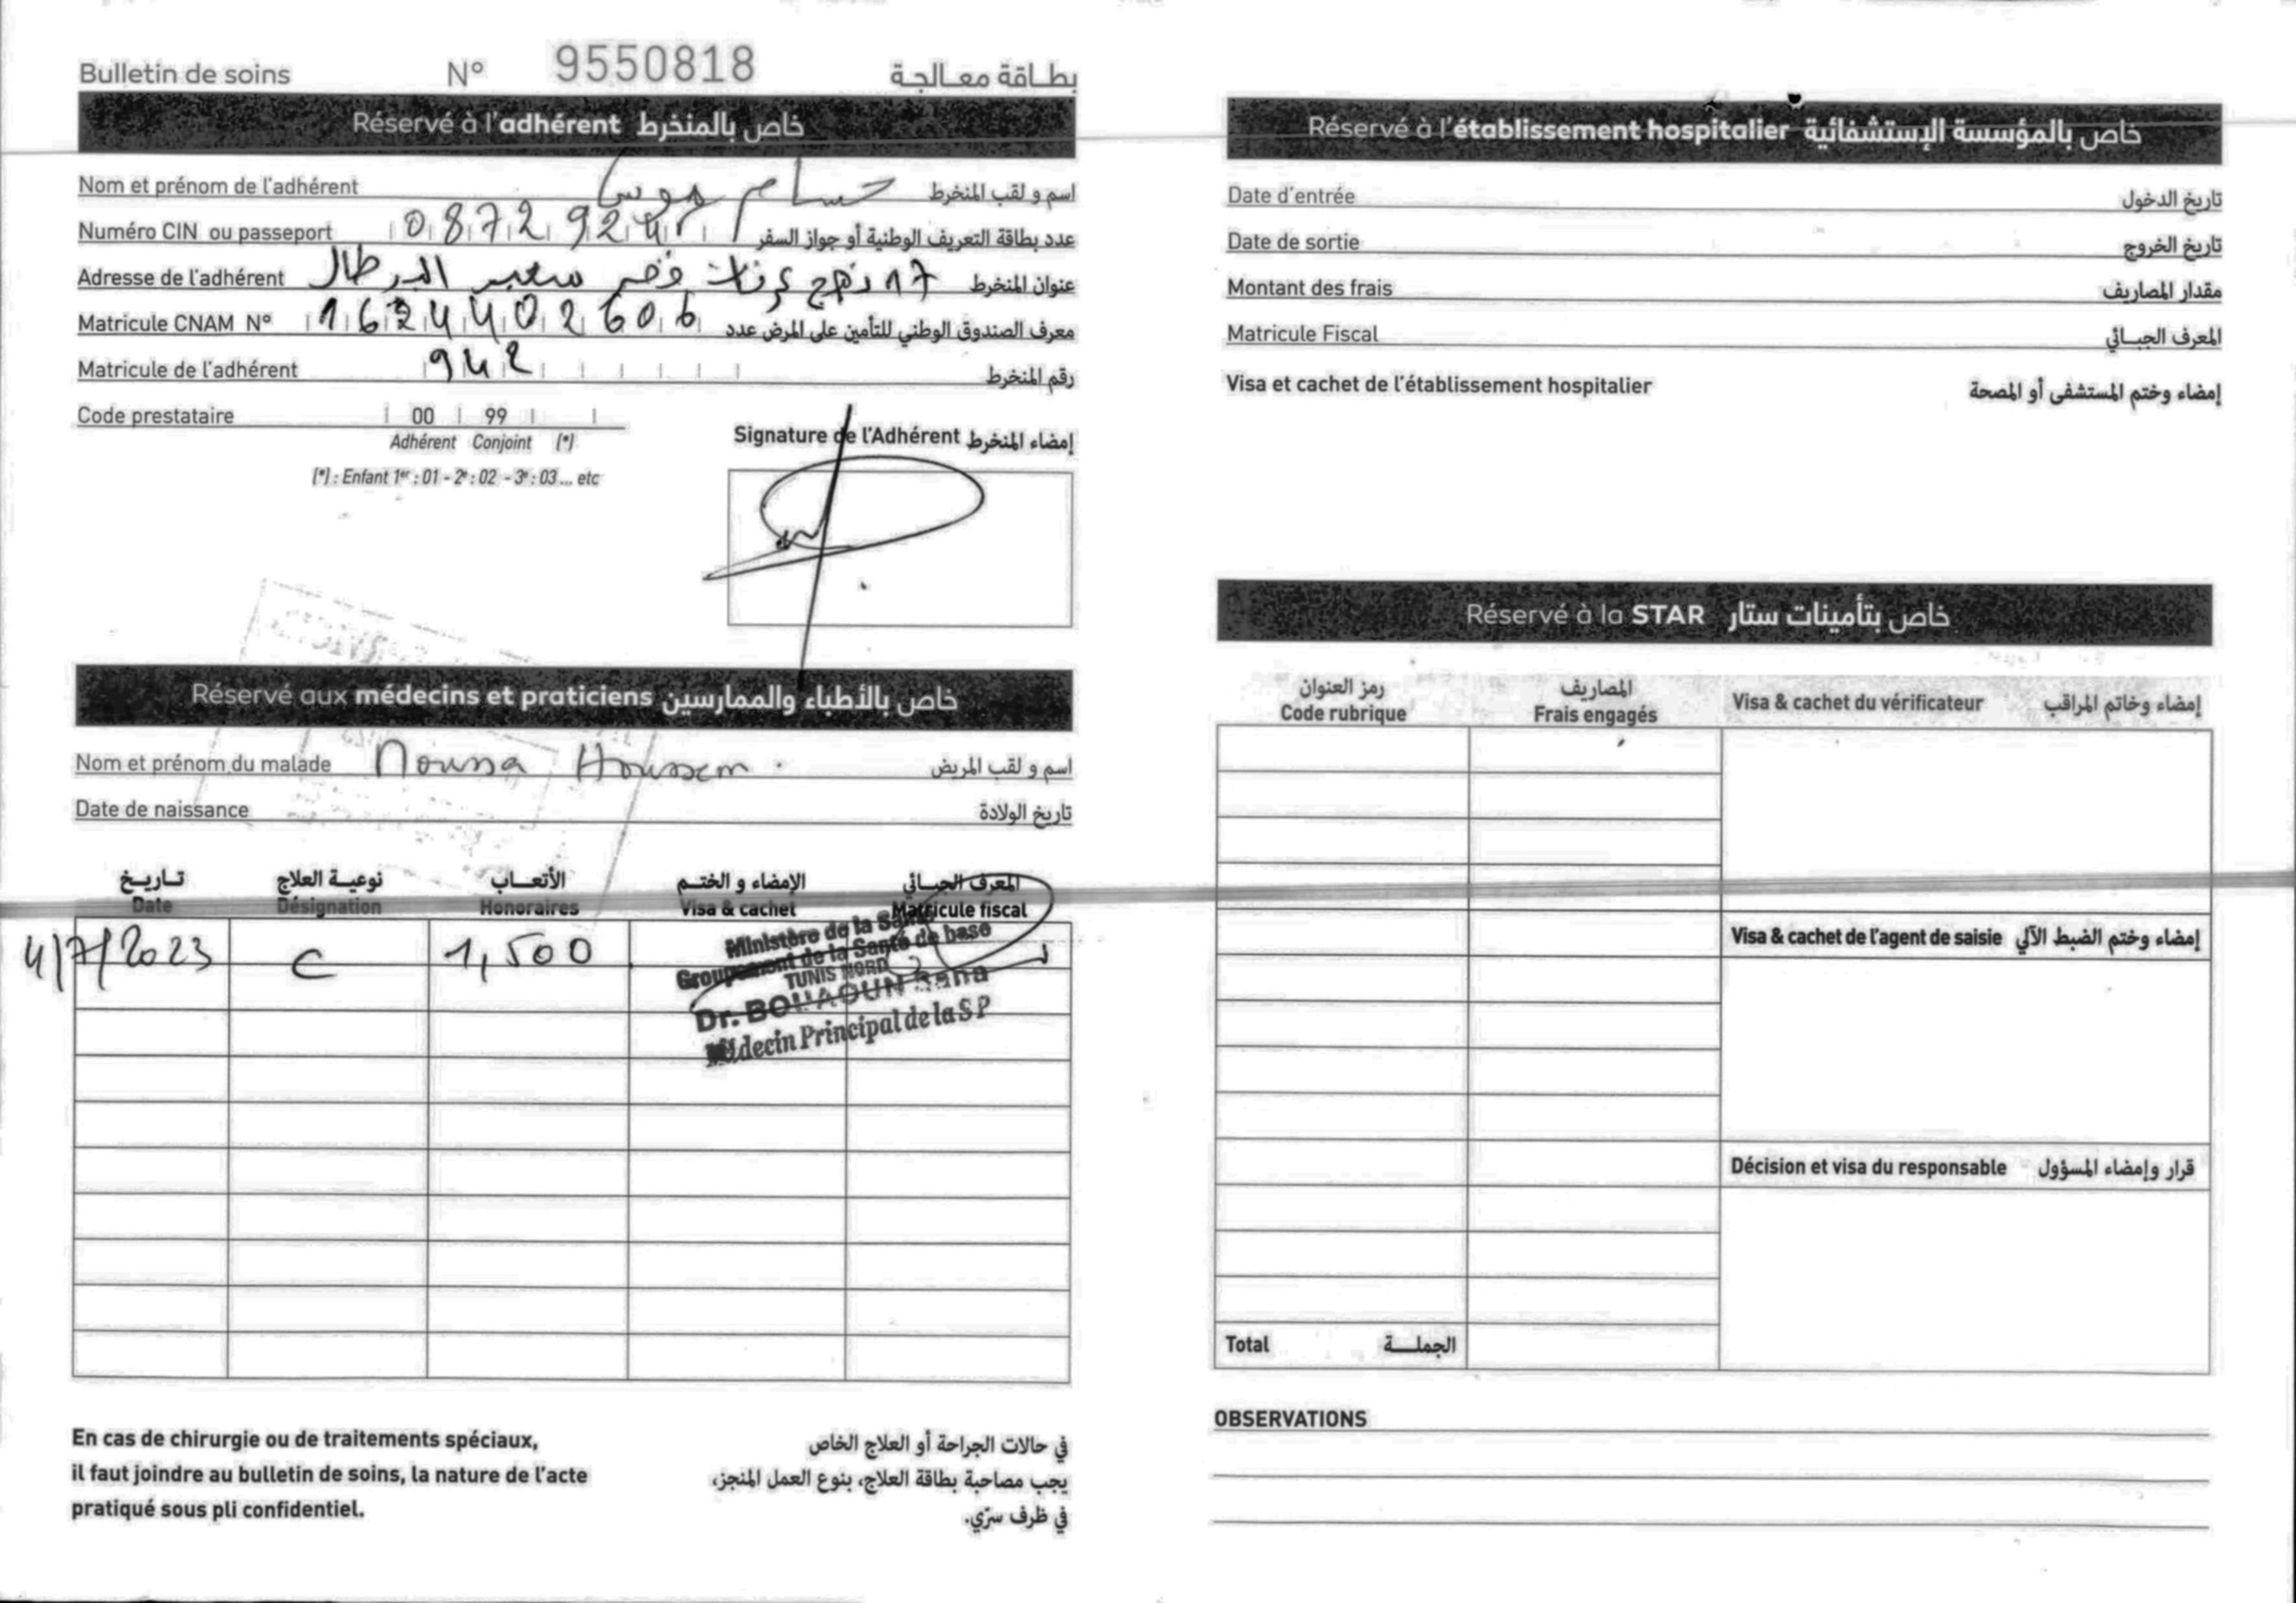 Bulletin de soins N° 9550818 بطاقة معالجة
Réservé à l'adhérent خاص بالمنخرط
Nom et prénom de l'adhérent حسام موسى اسم و لقب المنخرط
Numéro CIN ou passeport 0872924 عدد بطاقة التعريف الوطنية أو جواز السفر
Adresse de l'adhérent 17 نهج عرفات قصر سعيد البرطال عنوان المنخرط
Matricule CNAM N° معرف الصندوق الوطني للتأمين على المرض عدد
Matricule de l'adhérent 942 رقم المنخرط
Code prestataire 00 99
Adhérent Conjoint (*)
(*) : Enfant 1er : 01 - 2e : 02 - 3e : 03 ... etc
Signature de l'Adhérent إمضاء المنخرط
Réservé aux médecins et praticiens خاص بالأطباء والممارسين
Nom et prénom du malade Moussa Houssem اسم و لقب المريض
Date de naissance تاريخ الولادة
تاريخ نوعية العلاج الأتعاب الإمضاء و الختم المعرف الجبائي
Date Désignation Honoraires Visa & cachet Matricule fiscal
4/7/2023 C 1,500
Ministère de la Santé
Groupement de la Santé de base
TUNIS NORD
Dr. BOUAOUN Sana
Médecin Principal de la S P
En cas de chirurgie ou de traitements spéciaux,
il faut joindre au bulletin de soins, la nature de l'acte
pratiqué sous pli confidentiel.
في حالات الجراحة أو العلاج الخاص
يجب مصاحبة بطاقة العلاج، بنوع العمل المنجز،
في ظرف سرّي.
Réservé à l'établissement hospitalier خاص بالمؤسسة الإستشفائية
Date d'entrée تاريخ الدخول
Date de sortie تاريخ الخروج
Montant des frais مقدار المصاريف
Matricule Fiscal المعرف الجبائي
Visa et cachet de l'établissement hospitalier إمضاء وختم المستشفى أو المصحة
Réservé à la STAR خاص بتأمينات ستار
رمز العنوان المصاريف
Code rubrique Frais engagés Visa & cachet du vérificateur إمضاء وخاتم المراقب
Visa & cachet de l'agent de saisie إمضاء وختم الضبط الآلي
Décision et visa du responsable قرار وإمضاء المسؤول
Total الجملة
OBSERVATIONS